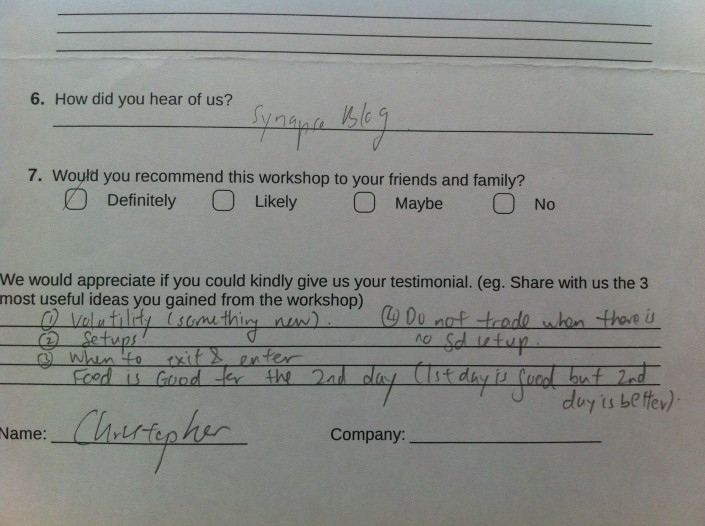 6. How did you hear of us?
Synapse Blog
7. Would you recommend this workshop to your friends and family?
Definitely Likely Maybe No
We would appreciate if you could kindly give us your testimonial. (eg. Share with us the 3
most useful ideas you gained from the workshop)
① Volatility (something new). ④ Do not trade when there is
② Setups no setup.
③ When to exit & enter
Food is Good for the 2nd day (1st day is good but 2nd
day is better).
Name: Christopher Company: